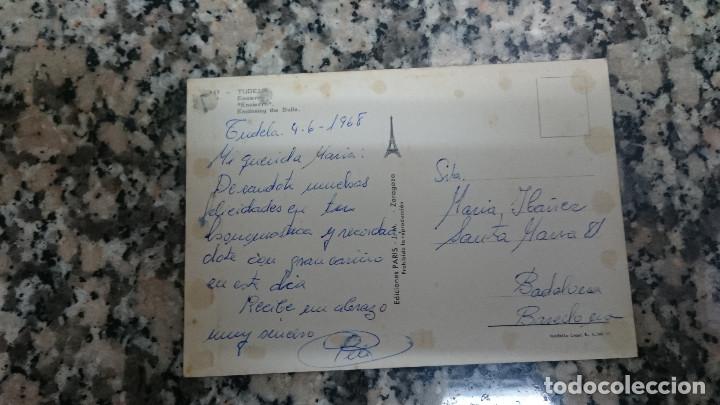 TUDELA
"Encierro".
Enclosing the Bulls.
Tudela 4-6-1968
Mi querida Maria:
Deseandote muchas
felicidades en tu
y recordan
dote con gran cariño
en este dia
Recibe un abrazo
muy sincero
Ediciones PARIS - J.M. - Zaragoza
Prohibida la reproducción
Srta.
Maria Ibañez
Santa Maria
Badalona
Barcelona
todocoleccion.net